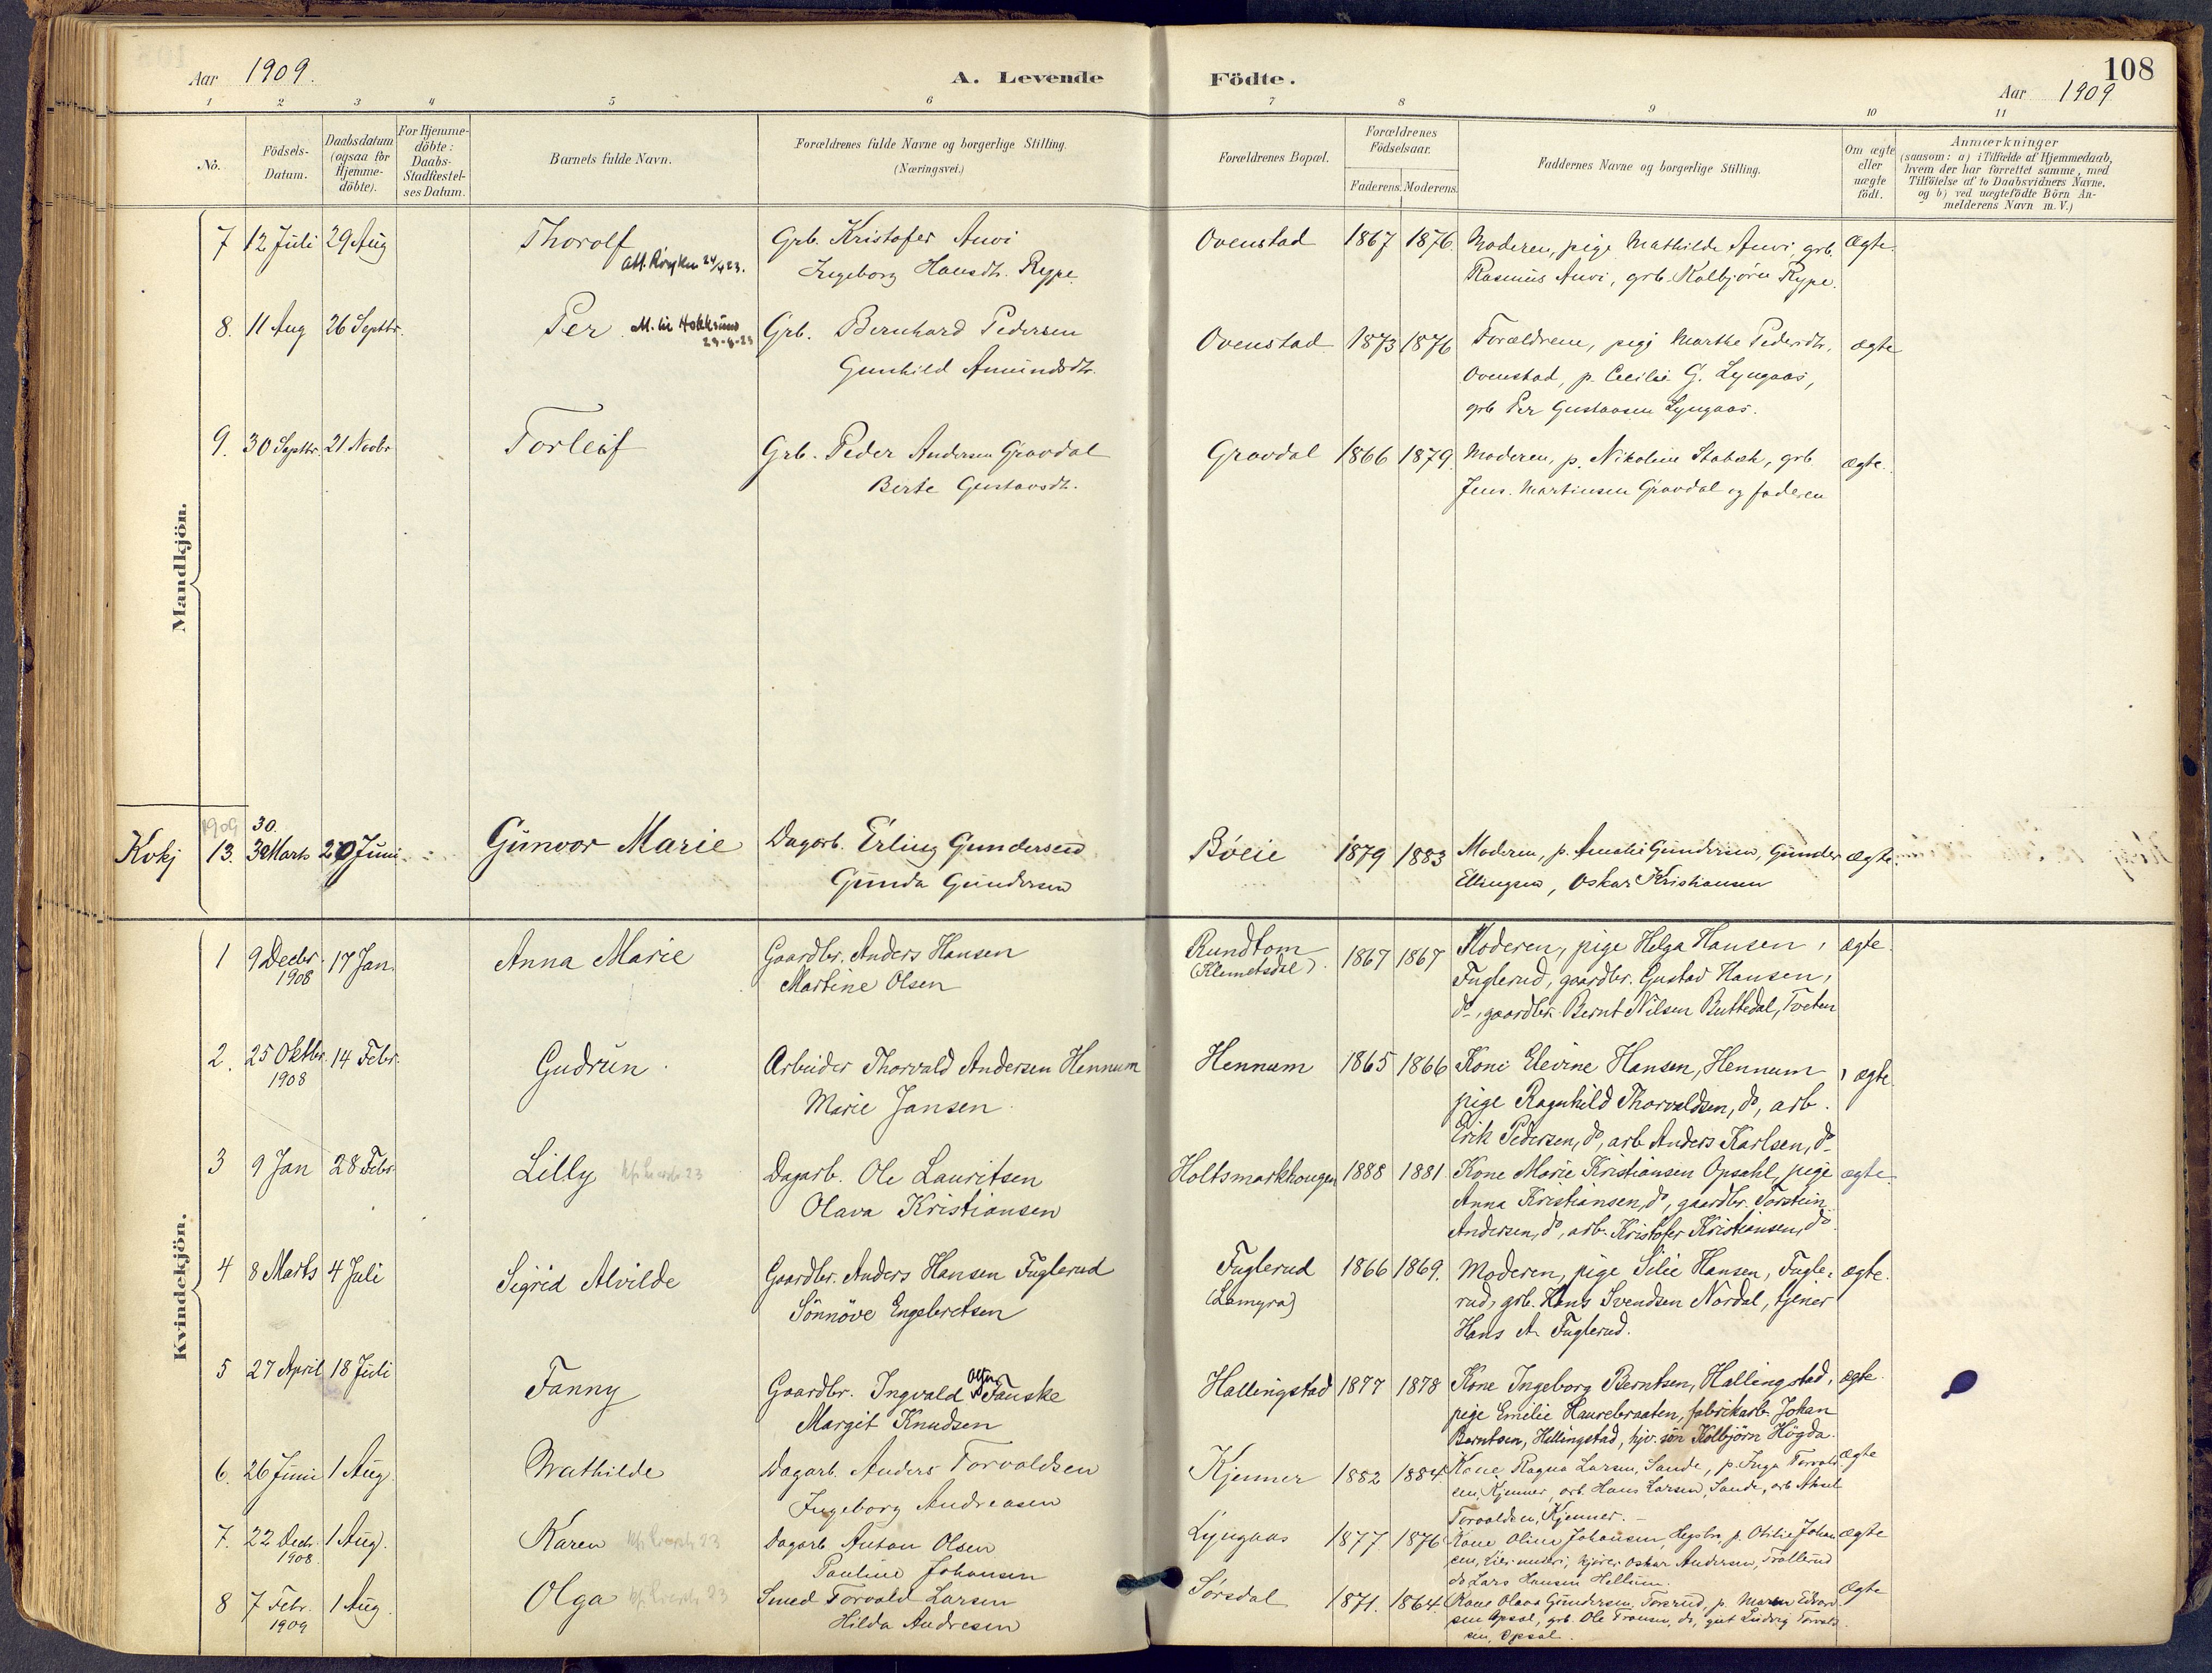 Aar 1909. A. Levende Födte. 108
Aar 1909
1 2 3 4 5 6 7 8 9 10 11
No. Födsels-Datum. Daabsdatum (ogsaa for Hjemme-döbte). For Hjemme-döbte: Daabs-Stadfæstel-ses Datum. Barnets fulde Navn. Forældrenes fulde Navne og borgerlige Stilling. (Næringsvei.) Forældrenes Bopæl. Forældrenes Födselsaar. Faderens. Moderens. Faddernes Navne og borgerlige Stilling. Om ægte eller uægte födt. Anmærkninger (saasom: a) i Tilfælde af Hjemmedaab, hvem der har forrettet samme, med Tilföielse af to Daabsvidners Navne, og b) ved uægtefödte Börn An-melderens Navn m. V.)
Mandkjön.
7 12 Juli 29 Aug Thorolf Grb. Kristofer Auvi Ovenstad 1867 1876. Moderen, pige Mathilde Auvi, grb. Ægte.
Att. Röyken 24/4 23. Ingeborg Hansdtr. Rype. Rasmus Auvi, grb. Kolbjörn Rype.
8. 11 Aug 26 Septbr. Per. M. til Hokksund Grb. Bernhard Pedersen Ovenstad 1873 1876 Forældrene, pige Marthe Pedersdtr. ægte
Gunhild Amundsdtr. Ovenstad, p. Cecilie G. Lyngaas,
grb Per Gustavsen Lyngaas.
9. 30 Septbr. 21 Novbr Torleif Grb. Peder Andersen Gravdal Gravdal 1866 1879. Moderen, p. Nikoline Stabæk, grb. ægte.
Berte Gustavsdtr. Jens Martinsen Gravdal og faderen
1909 30.
Kvkj 13. Marts 20 Juni Gunvor Marie Dagarb. Erling Gundersen Böeie 1879 1883 Moderen, p. Amalie Gundersen, Gunder ægte.
Gunda Gundersen Ellingsen, Oskar Kristiansen
Kvindekjön.
1 9 Decbr. 1908 17 Jan. Anna Marie Gaardbr. Anders Hansen Rundtom (Klemetsdal). 1867 1867 Moderen, pige Helga Hansen, ægte.
Martine Olsen Fuglerud, gaardbr. Gustav Hansen,
do, gaardbr. Bernt Nilsen Buttedal, Tveten
2. 25 Oktbr. 1908 14 Febr. Gudrun Arbeider Thorvald Andersen Hennum Hennum 1865 1866 Kone Elevine Hansen, Hennum, ægte.
Marie Jansen. pige Ragnhild Thorvaldsen, do, arb.
Erik Pedersen, do, arb Anders Karlsen, do
3 9 Jan 28 Febr Lilly Dagarb. Ole Lauritsen Holtsmarkhougen 1888 1881 Kone Marie Kristiansen Opsahl, pige ægte.
Olava Kristiansen Anna Kristiansen, do, gaardbr. Torstein
Andersen, do, arb. Kristofer Kristiansen, do.
4 8 Marts 4 Juli Sigrid Alvilde Gaardbr. Anders Hansen Fuglerud Fuglerud 1866 1869. Moderen, pige Silie Hansen, Fugle- ægte.
Sönnöve Engebretsen (Lomyra) rud, grb. Hans Svendsen Nordal, tjener
Hans A. Fuglerud.
5 27 April 18 Juli Fanny Gaardbr. Ingvald Olsen Fauske Hallingstad 1877 1878 Kone Ingeborg Berntsen, Hallingstad, ægte.
Margit Knudsen pige Emilie Haurebraaten, fabrikarb. Johan
Berntsen, Hallingstad, hjv. sön Kolbjörn Högda.
6. 26 Juni 1 Aug. Mathilde Dagarb. Anders Torvaldsen Kjenner 1882 1884. Kone Ragna Larsen, Sande, p. Inga Torvald- Ægte
Ingeborg Andreasen sen, Kjenner, arb. Hans Larsen, Sande, arb Aksel
Torvaldsen, Kjenner.
7. 22 Decb. 1908 1 Aug. Karen Dagarb Anton Olsen Lyngaas 1877 1876 Kone Olina Johansen, p. Otilie Johan ægte
Pauline Johansen sen, Oskar Andersen, Trollerud
do Lars Hansen Hellum.
8 7 Febr. 1909 1 Aug. Olga Smed Torvald Larsen Sörsdal 1871. 1864. Kone Olava Gundersen, Torsrud, p. Maren Edvard Ægte
Hilda Andresen sen Opsal, grb. Ole Fransen, do, gut Ludvig Torvald
sen, Opsal.